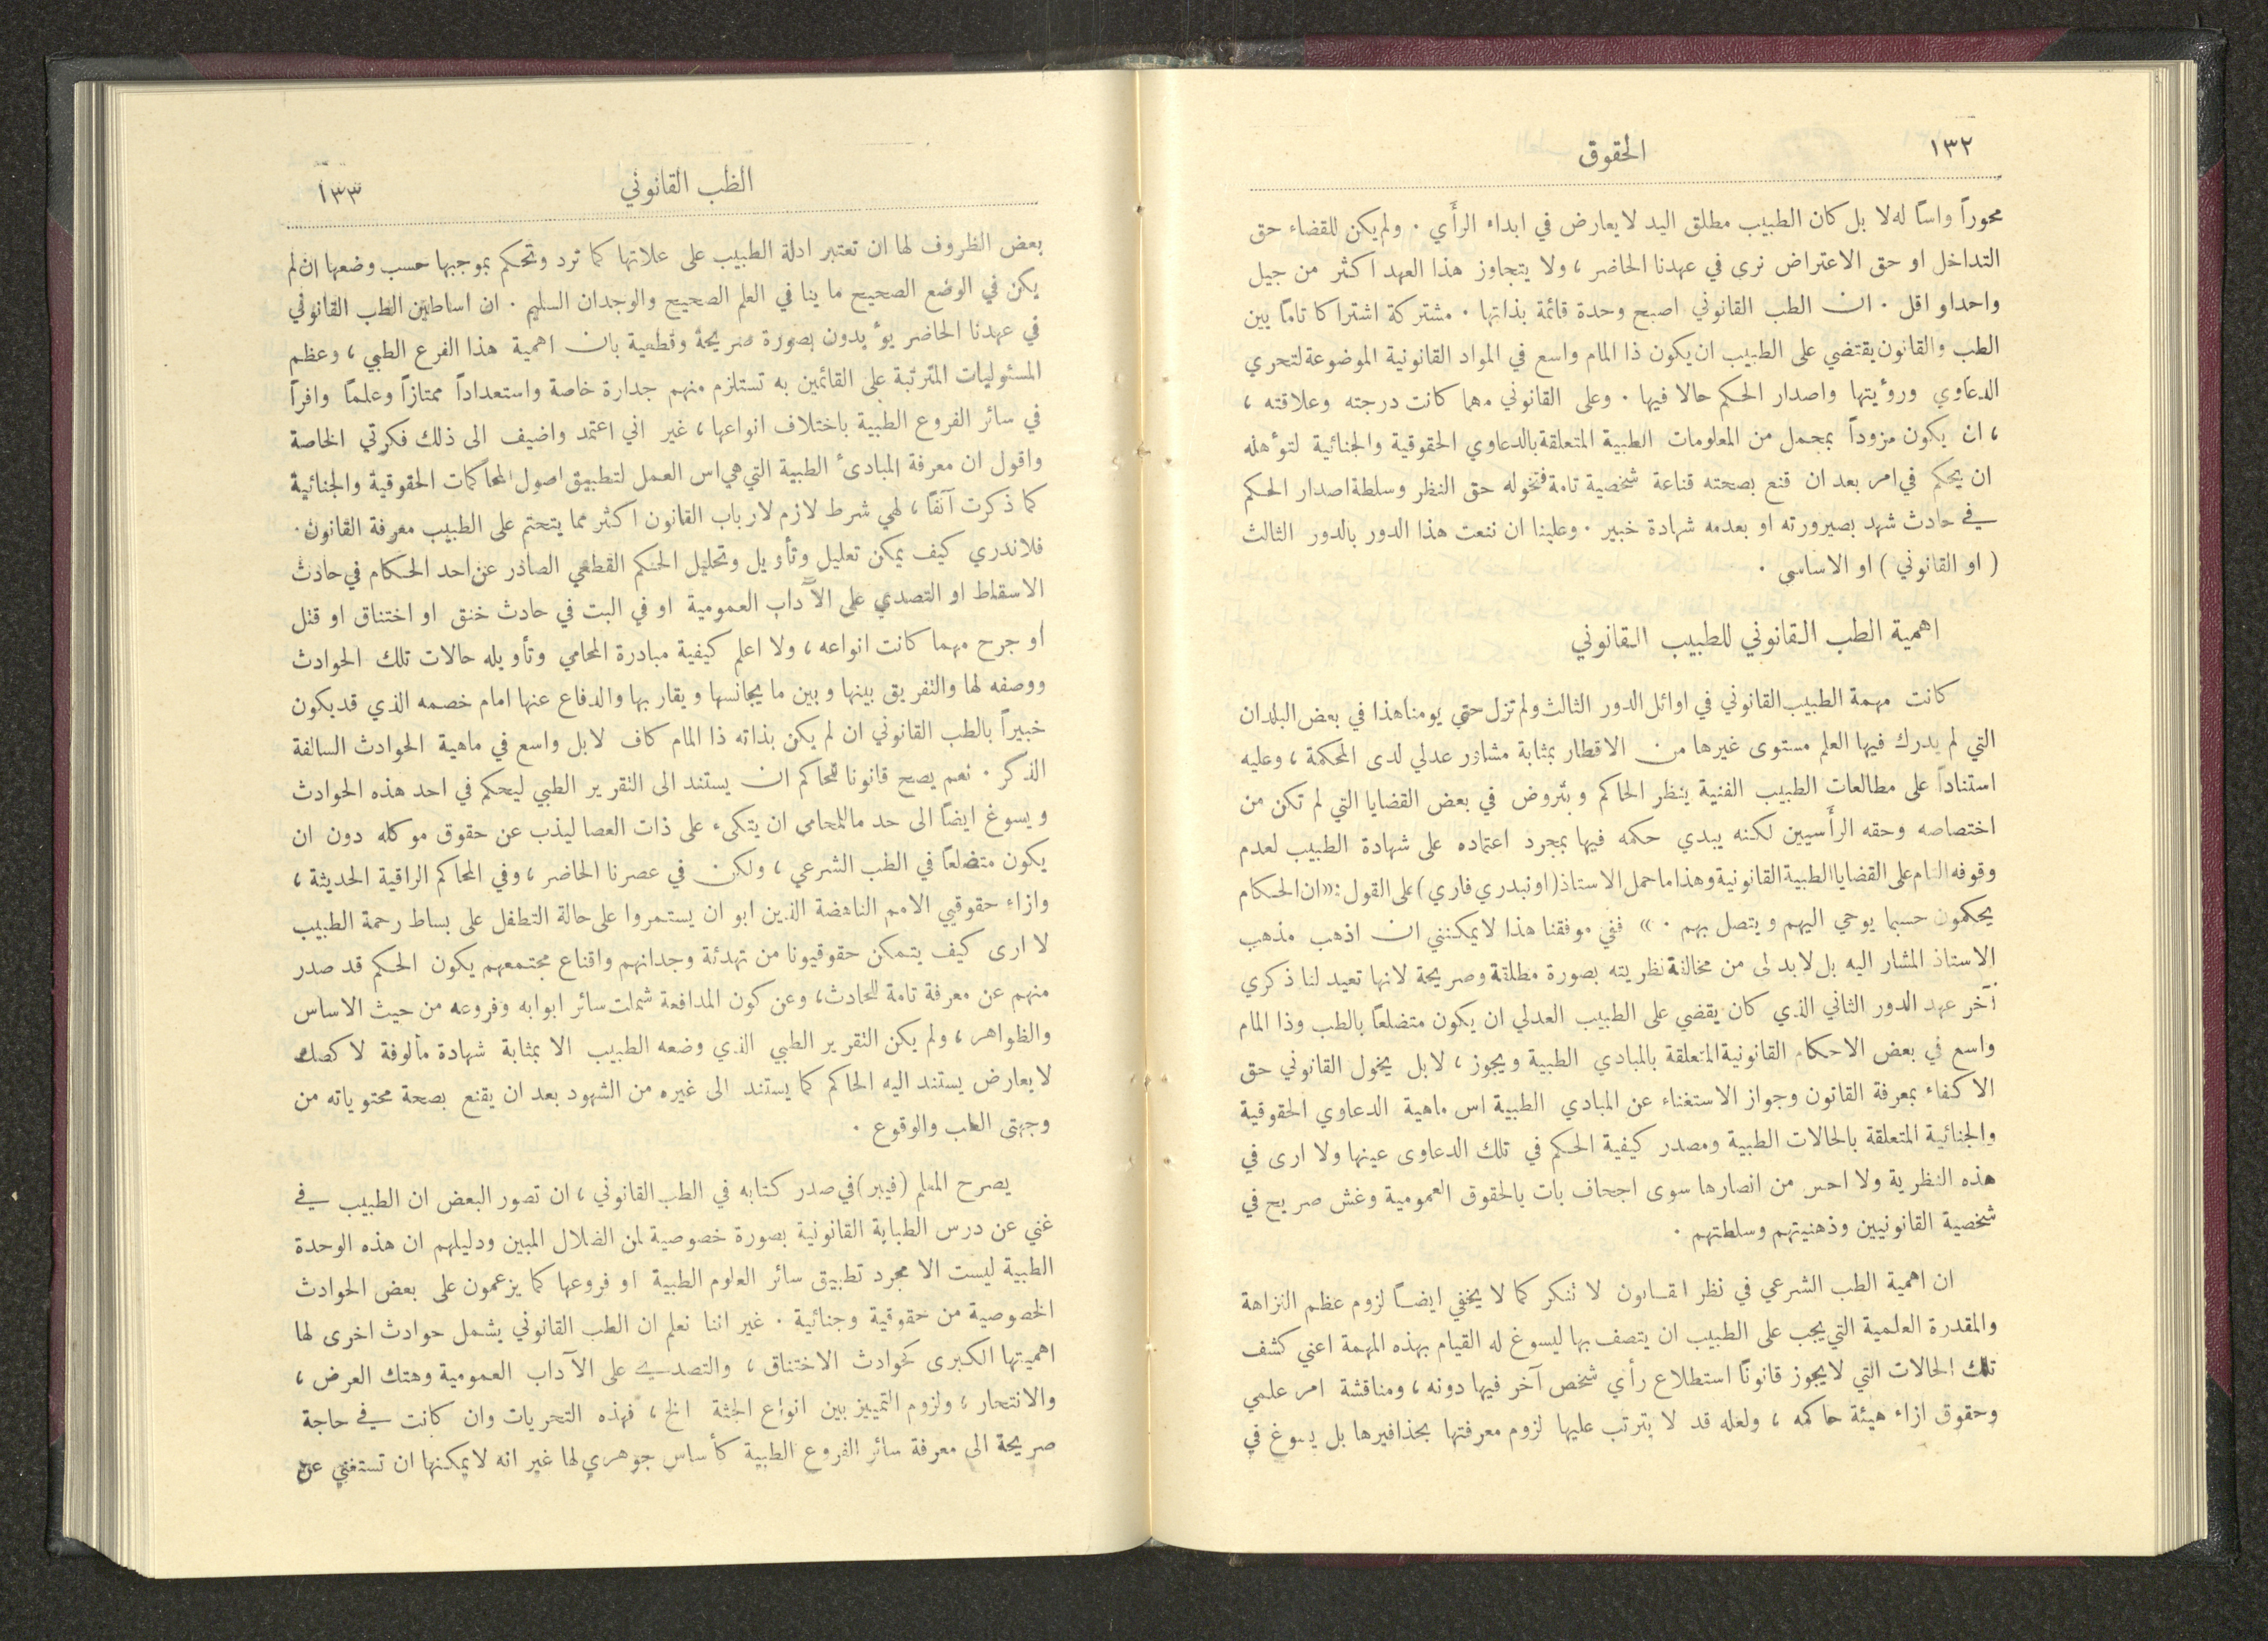 ١٣٢
الحقوق
محوراً واساً له لا بل كان الطبيب مطلق اليد لا يعارض في ابداء الرأَي . ولم يكن للقضاء حق
التداخل او حق الاعتراض نرى في عهدنا الحاضر ، ولا يتجاوز هذا العهد اكثر من جيل
واحداو اقل . ان الطب القانوني اصبح وحدة قائمة بذاتها . مشتركة اشتراكا تاماً بين
الطب والقانون يقتضي على الطبيب ان يكون ذا المام واسع في المواد القانونية الموضوعة لتحري
الدعاوي ورؤيتها واصدار الحكم حالا فيها . وعلى القانوني مهما كانت درجته وعلاقته ،
، ان يكون مزوداً بمجمل من المعلومات الطبية المتعلقة بالدعاوي الحقوقية والجنائية لتؤهله
ان يحكم في امر بعد ان قنع بصحته قناعة شخصية تامة فتخوله حق النظر وسلطة اصدار الحكم
في حادث شهد بصيرورته او بعدمه شهادة خبير . وعلينا ان ننعت هذا الدور بالدور الثالث
( او القانوني ) او الاساسي .
اهمية الطب القانوني للطبيب القانوني
كانت مهمة الطبيب القانوني في اوائل الدور الثالث ولم تزل حتى يومنا هذا في بعض البلدان
التي لم يدرك فيها العلم مستوى غيرها من الاقطار بمثابة مشاور عدلي لدى المحكمة ، وعليه
استناداً على مطالعات الطبيب الفنية ينظر الحاكم ويتروض في بعض القضايا التي لم تكن من
اختصاصه وحقه الرأَسيين لكنه يبدي حكمه فيها بمجرد اعتماده على شهادة الطبيب لعدم
وقوفه التام على القضايا الطبية القانونية وهذا ما حمل الاستاذ (اونبدري فاري) على القول : «ان الحكام
يحكمون حسبما يوحي اليهم ويتصل بهم . » ففي موفقنا هذا لا يمكنني ان اذهب مذهب
الاستاذ المشار اليه بل لابد لى من مخالفة نظريته بصورة مطلقة وصريحة لانها تعيد لنا ذكري
آخر عهد الدور الثاني الذي كان يقضي على الطبيب العدلي ان يكون متضلعاً بالطب وذا المام
واسع في بعض الاحكام القانونية المتعلقة بالمبادي الطبية ويجوز ، لا بل يخول القانوني حق
الاكفاء بمعرفة القانون وجواز الاستغناء عن المبادي الطبية اس ماهية الدعاوي الحقوقية
والجنائية المتعلقة بالحالات الطبية ومصدر كيفية الحكم في تلك الدعاوى عينها ولا ارى في
هذه النظرية ولا احس من انصارها سوى اجحاف بات بالحقوق العمومية وغش صريح في
شخصية القانونيين وذهنيتهم وسلطتهم .
ان اهمية الطب الشرعي في نظر القانون لا تنكر كما لا يخفي ايضاً لزوم عظم النزاهة
والمقدرة العلمية التي يجب على الطبيب ان يتصف بها ليسوغ له القيام بهذه المهمة اعني كشف
تلك الحالات التي لا يجوز قانوناً استطلاع رأي شخص آخر فيها دونه ، ومناقشة امر علمي
وحقوق ازاء هيئة حاكمه ، ولعله قد لا يترتب عليها لزوم معرفتها بحذافيرها بل يسوغ في
الطب القانوني
١٣٣
بعض الظروف لها ان تعتبر ادلة الطبيب على علاتها كما ترد وتحكم بموجبها حسب وضعها ان لم
يكن في الوضع الصحيح ما ينافي العلم الصحيح والوجدان السليم . ان اساطين الطب القانوني
في عهدنا الحاضر يؤيدون بصورة صريحة وقطعية بان اهمية هذا الفرع الطبي ، وعظم
المسئوليات المترتبة على القائمين به تستلزم منهم جدارة خاصة واستعداداً ممتازاً وعلماً وافراً
في سائر الفروع الطبية باختلاف انواعها ، غير اني اعتمد واضيف الى ذلك فكرتي الخاصة
واقول ان معرفة المبادئ الطبية التي هي اس العمل لتطبيق اصول المحاكمات الحقوقية والجنائية
كما ذكرت آنفاً ، لهي شرط لازم لارباب القانون اكثر مما يتحتم على الطبيب معرفة القانون .
فلا ندري كيف يمكن تعليل وتأويل وتحليل الحكم القطعي الصادر عن احد الحكام في حادث
الاسقاط او التصدي على الآداب العمومية او في البت في حادث خنق او اختناق او قتل
او جرح مهما كانت انواعه ، ولا اعلم كيفية مبادرة المحامي وتأويله حالات تلك الحوادث
ووصفه لها والتفريق بينها وبين ما يجانسها ويقاربها والدفاع عنها امام خصمه الذي قد يكون
خبيراً بالطب القانوني ان لم يكن بذاته ذا المام كاف لا بل واسع في ماهية الحوادث السالفة
الذكر . نعم يصح قانونا للحاكم ان يستند الى التقرير الطبي ليحكم في احد هذه الحوادث
ويسوغ ايضاً الى حد ما للمحامي ان يتكىء على ذات العصا ليذب عن حقوق موكله دون ان
يكون متضلعاً في الطب الشرعي ، ولكن في عصرنا الحاضر ، وفي المحاكم الراقية الحديثة ،
وازاء حقوقيي الامم الناهضة الذين ابو ان يستمروا على حالة التطفل على بساط رحمة الطبيب
لا ارى كيف يتمكن حقوقيونا من تهدئة وجدانهم واقناع مجتمعهم يكون الحكم قد صدر
منهم عن معرفة تامة للحادث ، وعن كون المدافعة شملت سائر ابوابه وفروعه من حيث الاساس
والظواهر ، ولم يكن التقرير الطبي الذي وضعه الطبيب الا بمثابة شهادة مألوفة لا كصك
لا يعارض يستند اليه الحاكم كما يستند الى غيره من الشهود بعد ان يقنع بصحة محتوياته من
وجهتى الطب والوقوع .
يصرح المعلم (فيبر) في صدر كتابه في الطب القانوني ، ان تصور البعض ان الطبيب في
غني عن درس الطبابة القانونية بصورة خصوصية لمن الضلال المبين ودليلهم ان هذه الوحدة
الطبية ليست الا مجرد تطبيق سائر العلوم الطبية او فروعها كما يزعمون على بعض الحوادث
الخصوصية من حقوقية وجنائية . غير اننا نعلم ان الطب القانوني يشمل حوادث اخرى لها
اهميتها الكبرى كحوادث الاختناق ، والتصدي على الآداب العمومية وهتك العرض ،
والانتحار ، ولزوم التمييز بين انواع الجثة الخ ، فهذه التحريات وان كانت في حاجة
صريحة الى معرفة سائر الفروع الطبية كأساس جوهري لها غير انه لا يمكنها ان تستغني عن